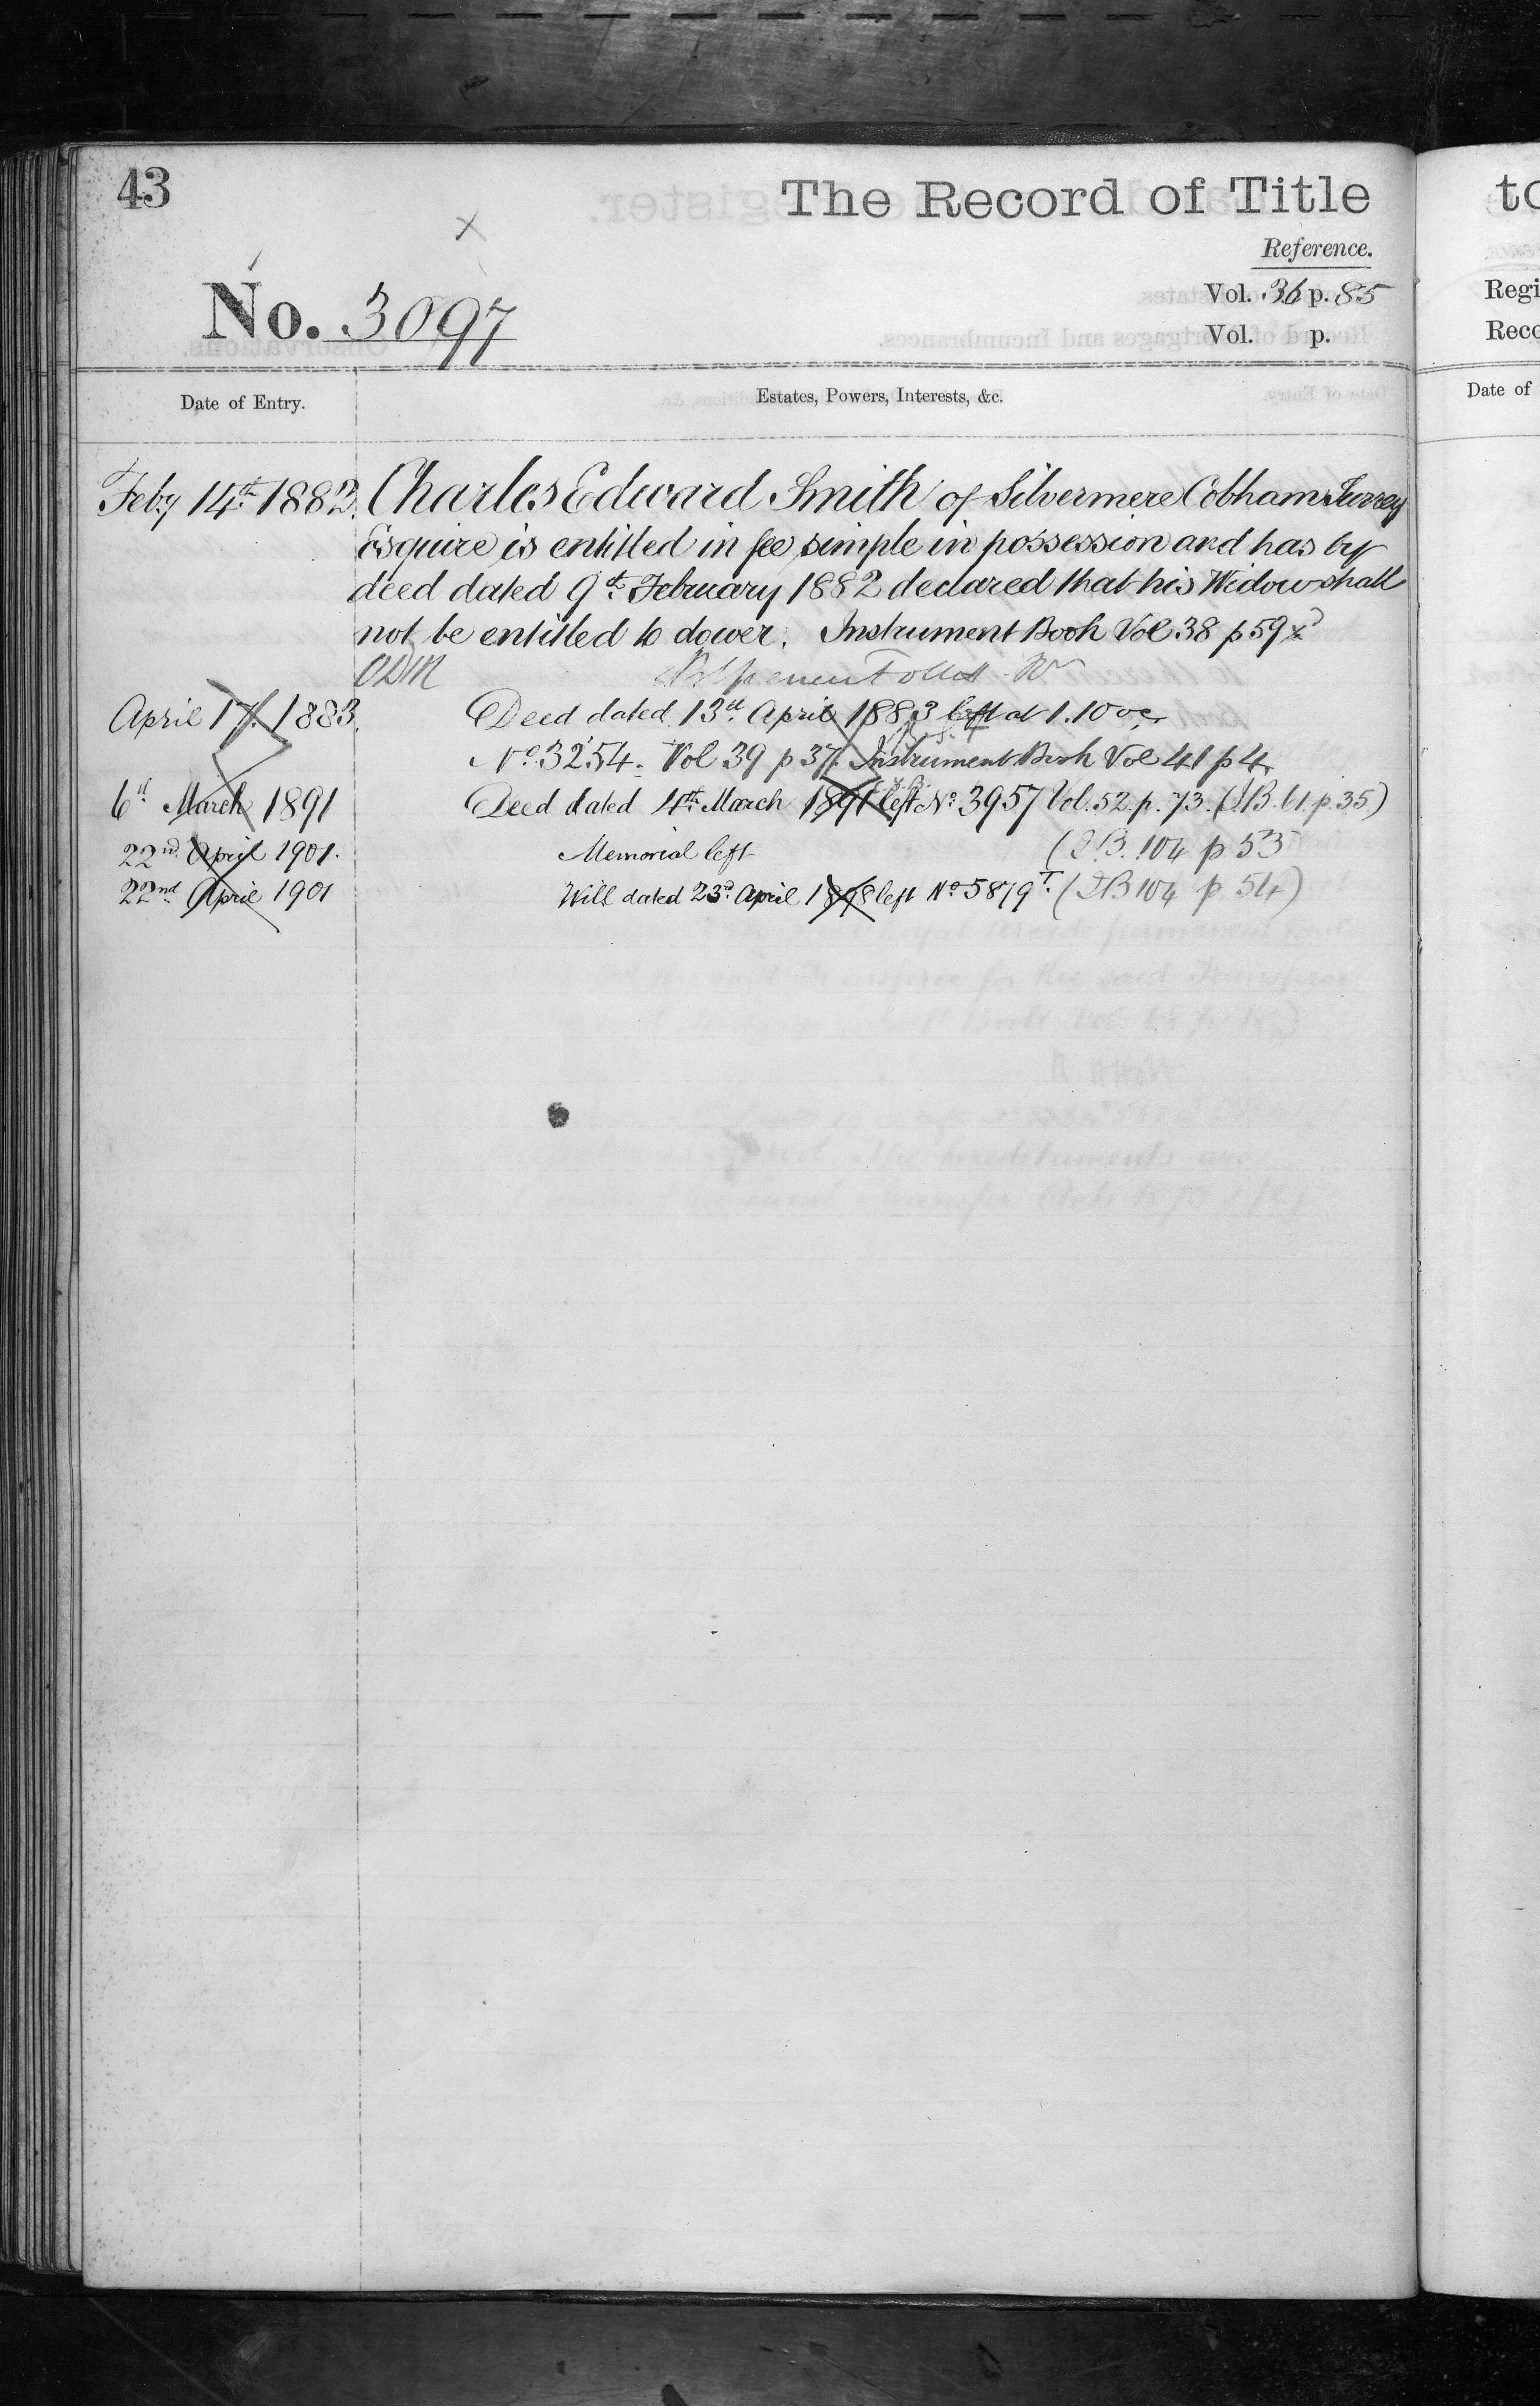 43
The Record of Title
Reference.
No. 3097
Vol. 36 p. 85
Vol. p.
Date of Entry.
Estates, Powers, Interests, &c.
Feby 14th 1882. Charles Edward Smith of Silvermere Cobham Surrey
Esquire is entitled in fee simple in possession and has by
deed dated 9th February 1882 declared that his Widow shall
not be entitled to dower. Instrument Book Vol 38 p 59
ODM
April 17. 1883. Deed dated 13th April 1883 left at 1.10
No. 3254. Vol 39 p 37. Instrument Book Vol 41 p 4
6th March 1891 Deed dated 4th March 1891 left No 3957 Vol. 52. p. 73. (I.B. 61. p. 35)
22nd April 1901. Memorial left (I.B. 104 p 53
22nd April 1901 Will dated 23rd April 1898 left No 5879T. (IB 104 p 54)
to
Regi
Reco
Date of